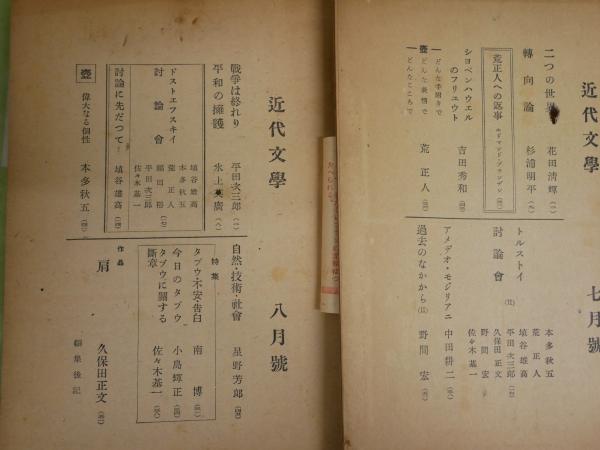 近代文學
七月號
二つの世界
花田清輝
轉向論
杉浦明平
荒正人への返事
エドマンド・ブランデン
ショペンハウエルのフリュウト
吉田秀和
壺
どんな手附きで
どんな表情で
どんなこころで
荒正人
トルストイ討論會
本多秋五
荒正人
埴谷雄高
平田次三郎
久保田正文
野間宏
佐々木基一
アメデオ・モジリアニ
中田耕二
過去のなかから
野間宏
近代文學
八月號
戰爭は終れり
平田次三郎
平和の擁護
氷上英廣
ドストエフスキイ討論會
埴谷雄高
本多秋五
荒正人
福田恆存
平田次三郎
佐々木基一
討論に先だつて
埴谷雄高
壺
偉大なる個性
本多秋五
自然・技術・社會
星野芳郎
特集
タブウ・不安・告白
南博
今日のタブウ
小島輝正
タブウに關する斷章
佐々木基一
作品
肩
久保田正文
編集後記